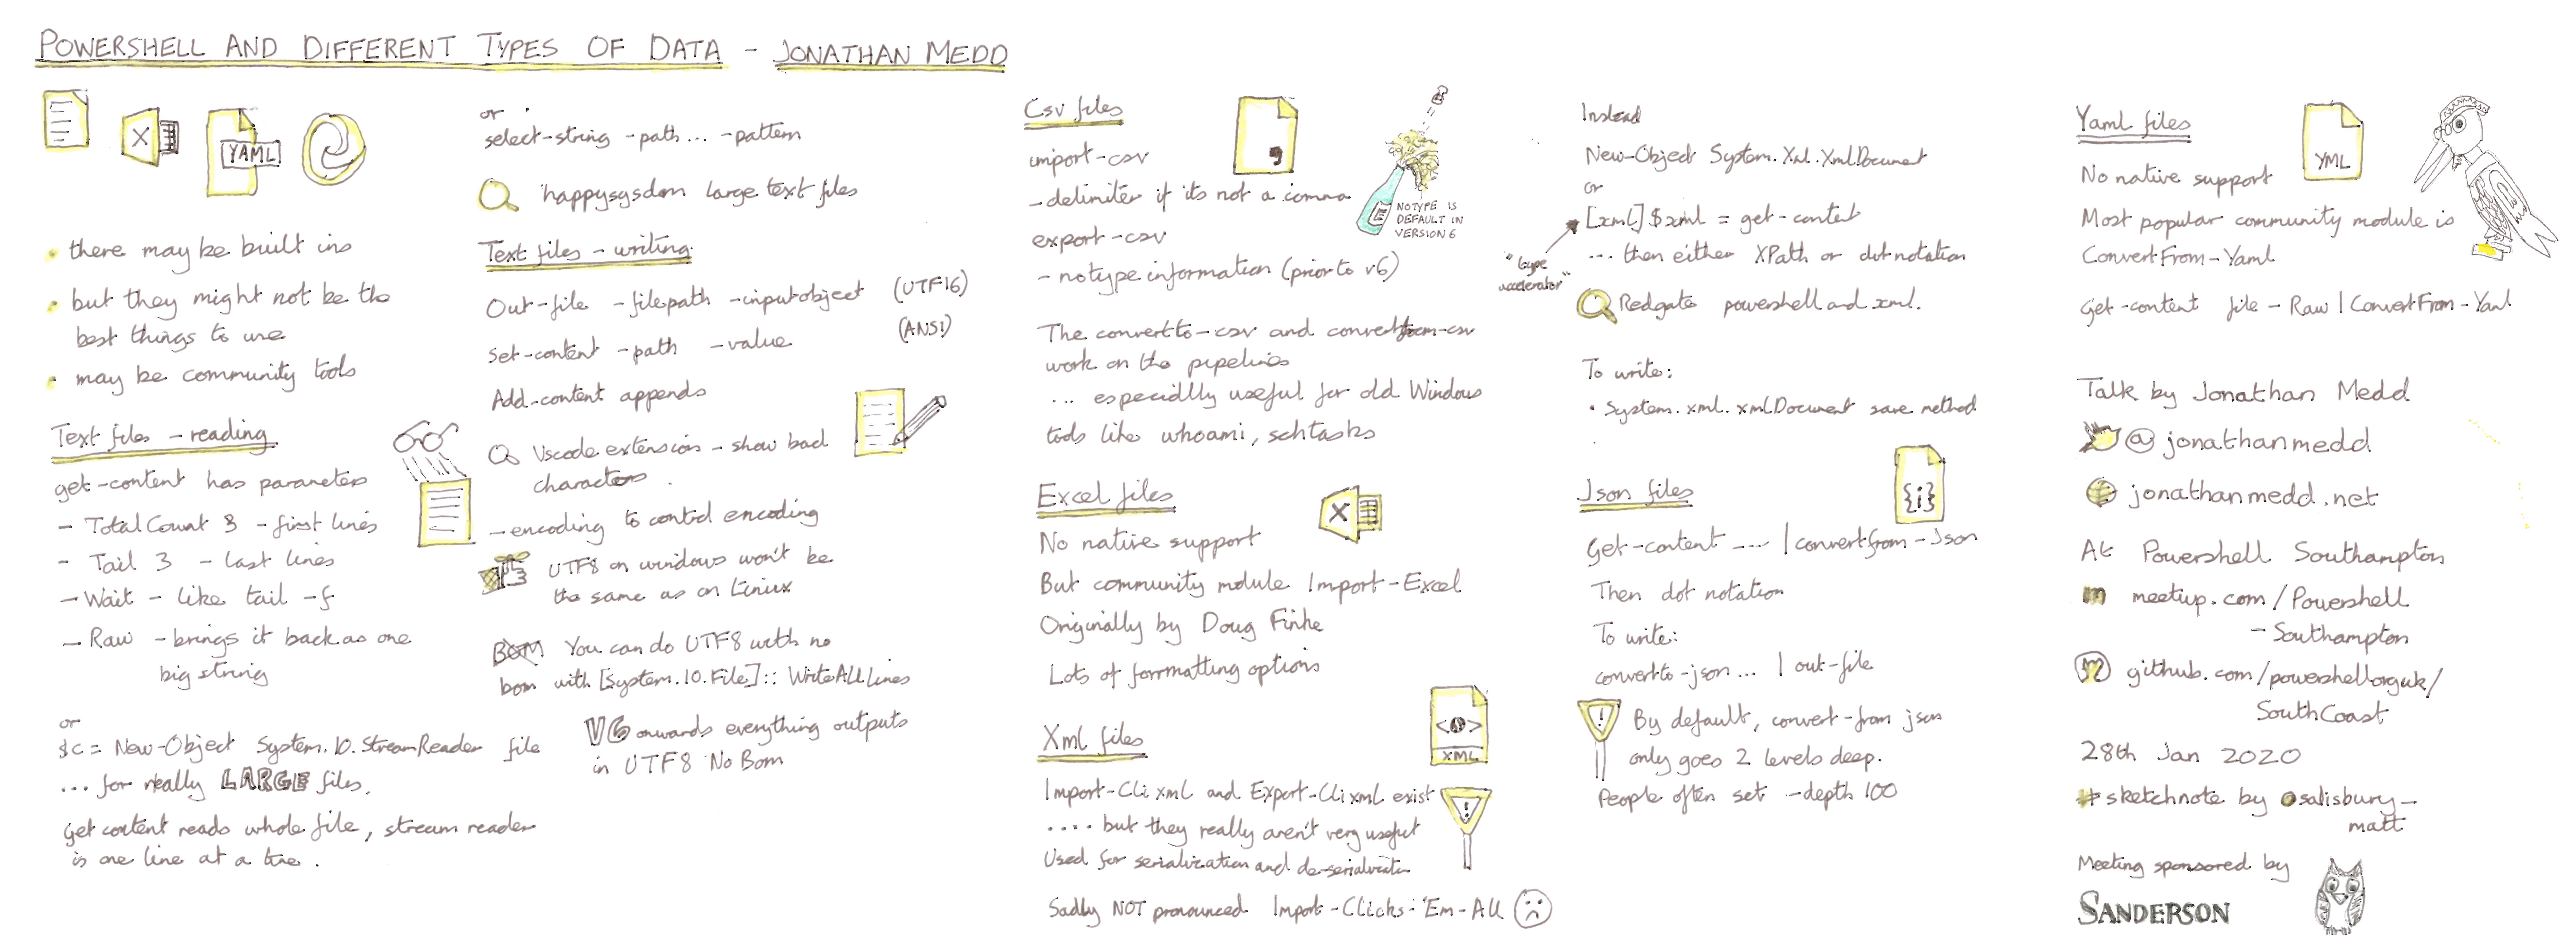 POWERSHELL AND DIFFERENT TYPES OF DATA - JONATHAN MEDD
X
YAML
there may be built ins
but they might not be the
best things to use
may be community tools
Text files - reading
get-content has parameters
- TotalCount 3 - first lines
- Tail 3 - last lines
- Wait - like tail -f
- Raw - brings it back as one
big string
or
$c = New-Object System.IO.StreamReader file
... for really LARGE files.
Get content reads whole file, stream reader
is one line at a time.
or
select-string -path... -pattern
happysysadm large text files
Text files - writing
Out-file -filepath -inputobject (UTF16)
Set-content -path -value (ANSI)
Add-content appends
Vscode extension - show bad
characters
-encoding to control encoding
UTF8 on windows won't be
the same as on Linux
BOM You can do UTF8 with no
bom with [System.IO.File]::WriteAllLines
V6 onwards everything outputs
in UTF8 No Bom
Csv files
import-csv
-delimiter if its not a comma
export-csv
-notypeinformation (prior to v6)
NOTYPE IS
DEFAULT IN
VERSION 6
The convertto-csv and convertfrom-csv
work on the pipelines
... especially useful for old Windows
tools like whoami, schtasks
Excel files
X
No native support
But community module Import-Excel
Originally by Doug Finke
Lots of formatting options
Xml files
XML
Import-Clixml and Export-Clixml exist
.... but they really aren't very useful
Used for serialization and de-serialization
Sadly NOT pronounced Import-Clicks-'Em-All
Instead
New-Object System.Xml.XmlDocument
or
[xml]$xml = get-content
"type
accelerator"
... then either XPath or dot notation
Redgate powershell and xml.
To write:
• System.xml.xmlDocument save method
Json files
{i}
Get-content .... | convertfrom-Json
Then dot notation
To write:
convertto-json... | out-file
! By default, convert-from json
only goes 2 levels deep.
People often set -depth 100
Yaml files
YML
No native support
Most popular community module is
ConvertFrom-Yaml
Get-content file -Raw | ConvertFrom-Yaml
Talk by Jonathan Medd
@jonathanmedd
jonathanmedd.net
At Powershell Southampton
m meetup.com/Powershell
-Southampton
github.com/powershellorguk/
SouthCoast
28th Jan 2020
#sketchnote by @salisbury_
matt
Meeting sponsored by
SANDERSON